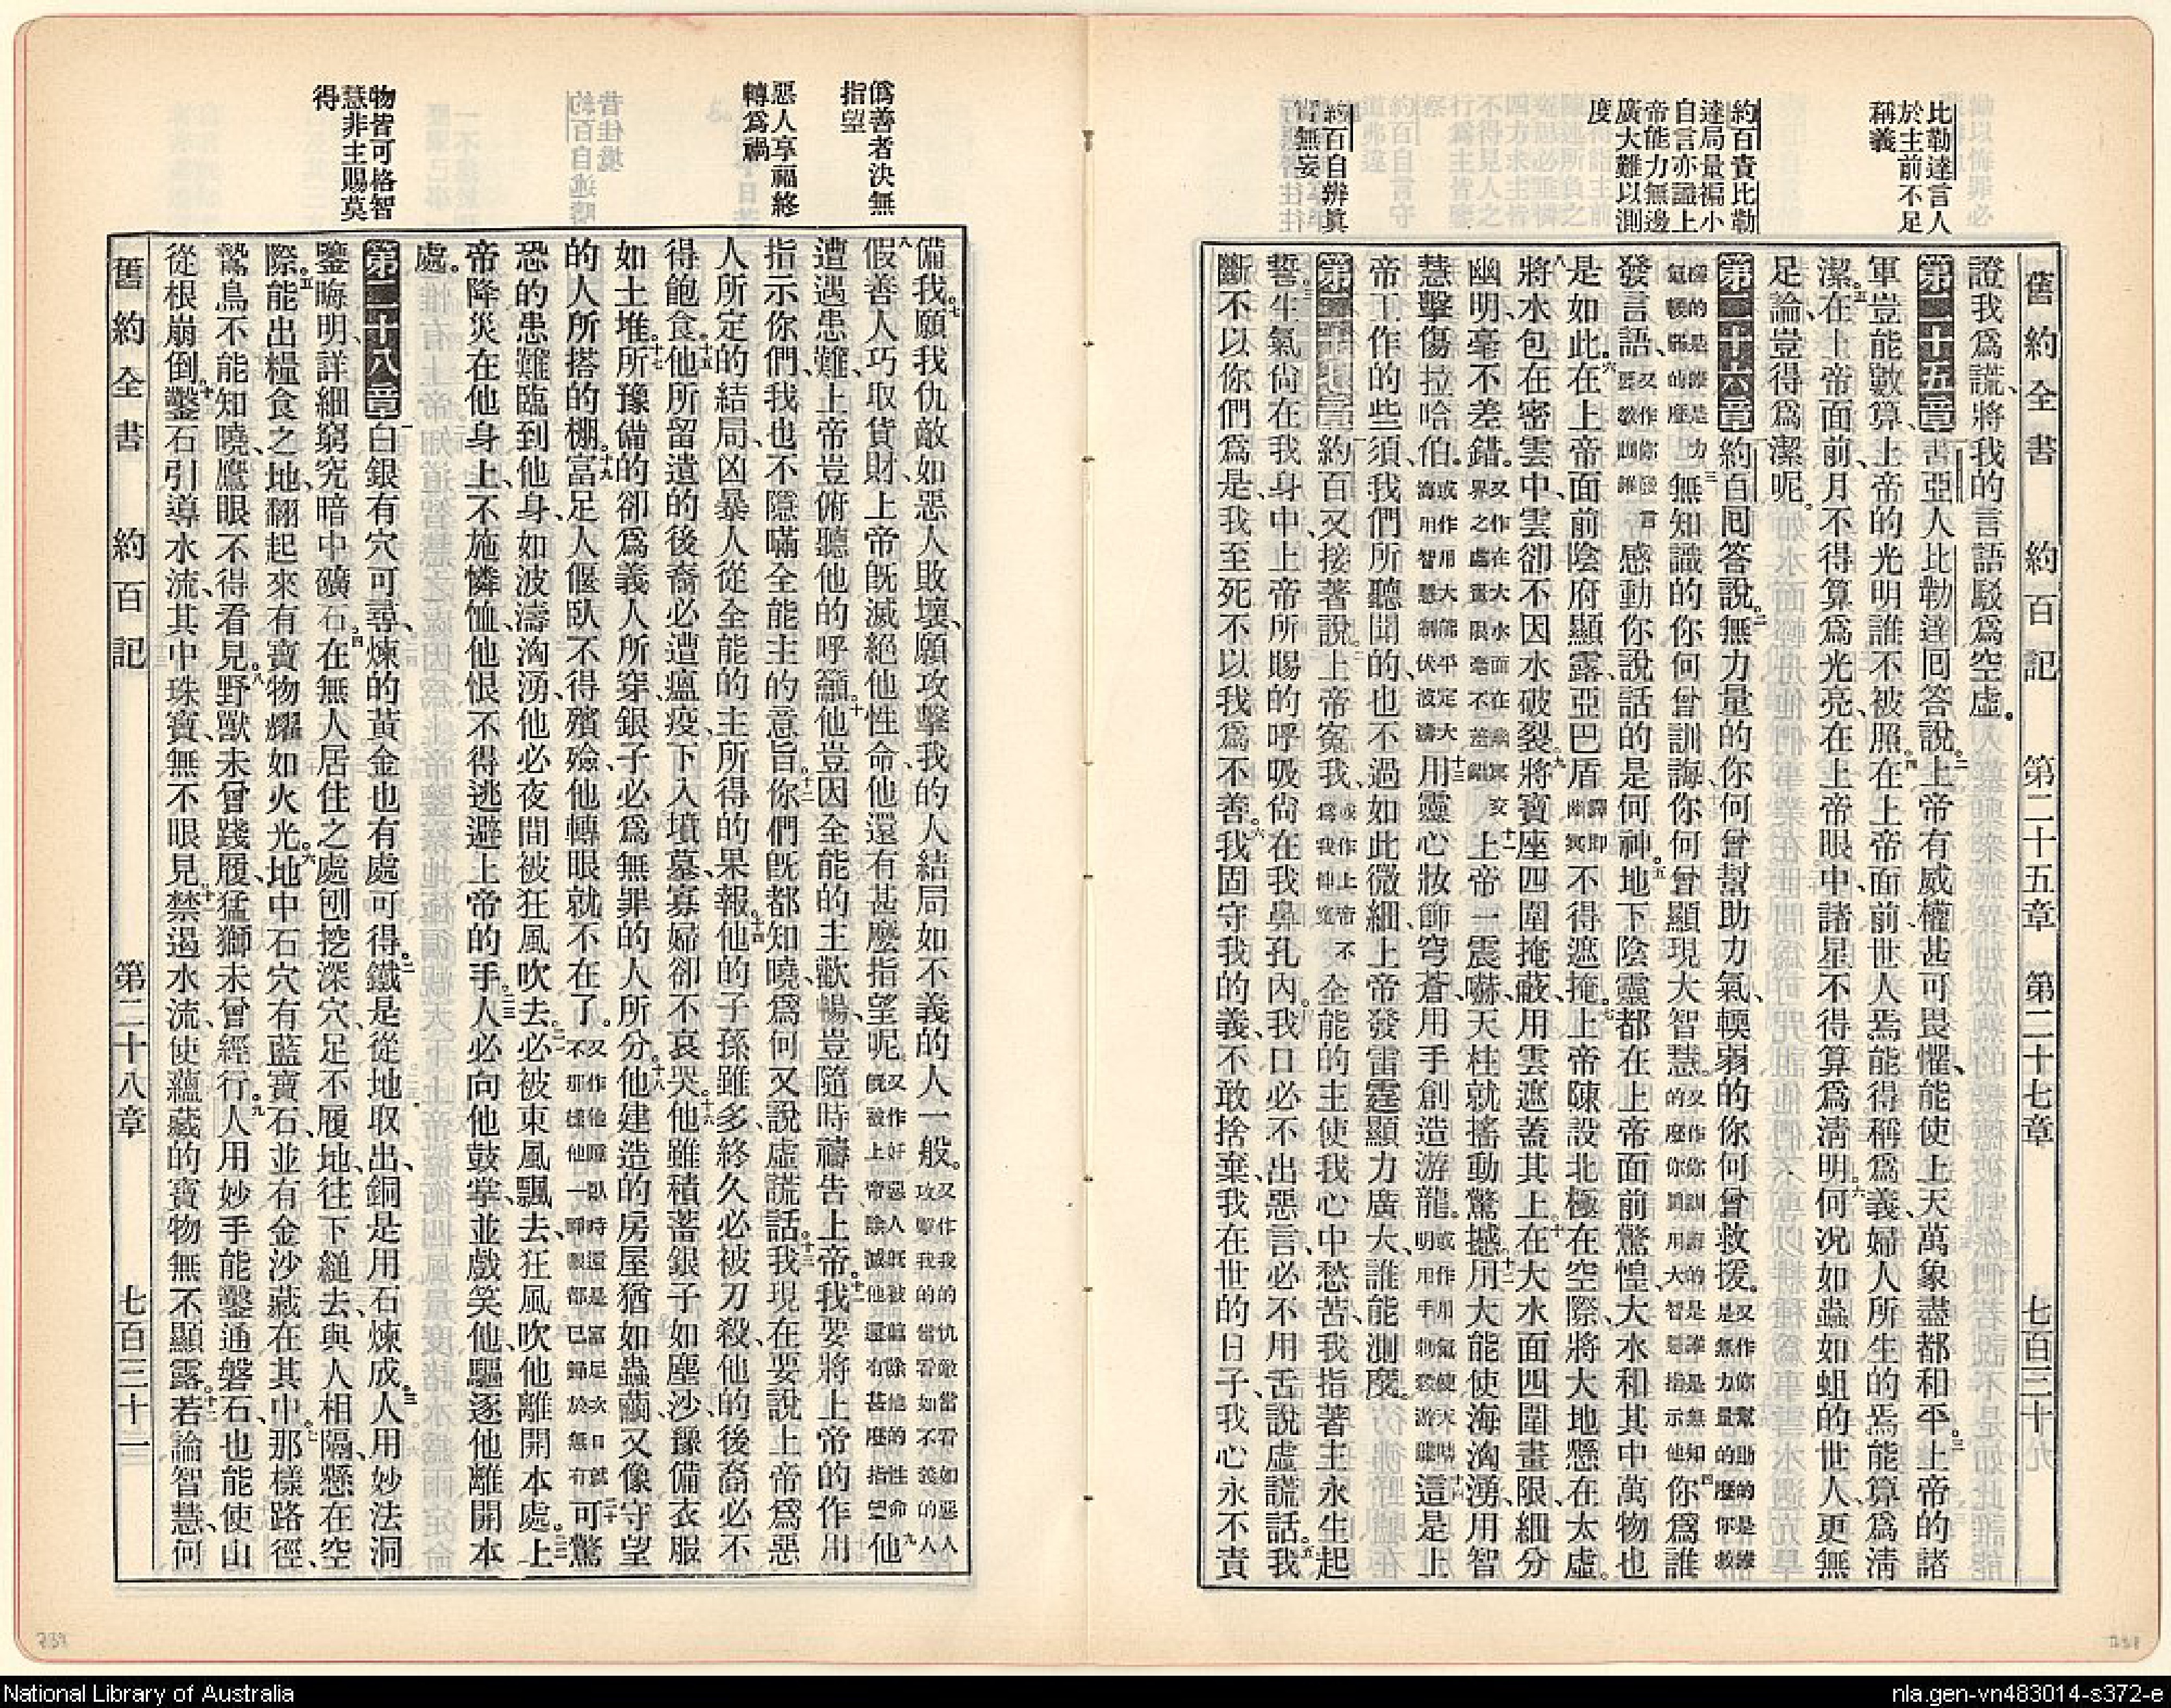 舊約全書 約百記 第二十五章 第二十七章 七百三十
比勒達言人
於主前不足
稱義
約百責比勒
達局量褊小
自言亦識上
帝能力無邊
廣大難以測
度
約百自辨眞
實無妄
證我爲謊、將我的言語駁爲空虛。
第二十五章 一書亞人比勒達囘答說。二上帝有威權甚可畏懼、能使上天萬象盡都和平。三上帝的諸
軍豈能數算、上帝的光明誰不被照。四在上帝面前、世人焉能得稱爲義、婦人所生的焉能算爲淸
潔。五在上帝面前、月不得算爲光亮、在上帝眼中、諸星不得算爲淸明。六何况如蟲如蛆的世人、更無
足論、豈得爲潔呢。
第二十六章 一約百囘答說。二無力量的你何曾幫助力氣、輭弱的你何曾救援。又作你幫助的是誰是無力量的麼你救
援的是誰是力氣輭弱的麼三無知識的你何曾訓誨、你何曾顯現大智慧。又作你訓誨的是誰是無知的麼你顯用大智慧指示他四你爲誰
發言語、又作你發言要敎訓誰感動你說話的是何神。五地下陰靈都在上帝面前驚惶、大水和其中萬物也
是如此。六在上帝面前陰府顯露、亞巴盾譯卽幽冥不得遮掩。七上帝陳設北極在空際、將大地懸在太虛。
八將水包在密雲中、雲卻不因水破裂。九將寶座四圍掩蔽、用雲遮蓋其上。十在大水面四圍畫限、細分
幽明、毫不差錯。又作在大水面在幽冥交界之處畫限毫不差錯十一上帝一震嚇、天柱就搖動驚撼。十二用大能使海洶湧、用智
慧擊傷拉哈伯。或作用大能平定大海用智慧制伏波濤十三用靈心妝飾穹蒼、用手創造游龍。十四這是上
帝工作的些須、我們所聽聞的、也不過如此微細、上帝發雷霆顯力廣大、誰能測度。
第二十七章 一約百又接著說。二上帝寃我、或作上帝不爲我伸寃全能的主使我心中愁苦、我指著主永生起
誓。三生氣尙在我身中、上帝所賜的呼吸尙在我鼻孔內。四我口必不出惡言、必不用舌說虛謊話。五我
斷不以你們爲是、我至死不以我爲不善。六我固守我的義、不敢捨棄、我在世的日子、我心永不責
僞善者決無
指望
惡人享福終
轉爲禍
物皆可格智
慧非主賜莫
得
備我。七願我仇敵如惡人敗壞、願攻擊我的人結局如不義的人一般。又作我的仇敵當看如惡人攻擊我的當看如不義的人
八假善人巧取貨財、上帝旣滅絕他性命、他還有甚麽指望呢。又作好惡人旣被剪除他的性命旣被上帝除滅他還有甚麽指望九他
遭遇患難、上帝豈俯聽他的呼籲。十他豈因全能的主歡暢、豈隨時禱告上帝。十一我要將上帝的作用
指示你們、我也不隱瞞全能主的意旨。十二你們旣都知曉、爲何又說虛謊話。十三我現在要說上帝爲惡
人所定的結局、凶暴人從全能的主所得的果報。十四他的子孫雖多、終久必被刀殺、他的後裔必不
得飽食。十五他所留遺的後裔必遭瘟疫、下入墳墓、寡婦卻不哀哭。十六他雖積蓄銀子如塵沙、豫備衣服
如土堆。十七所豫備的卻爲義人所穿、銀子必爲無罪的人所分。十八他建造的房屋猶如蟲繭、又像守望
的人所搭的棚。十九富足人偃臥不得殯殮、他轉眼就不在了。二十可驚
恐的患難臨到他身、如波濤洶湧、他必夜間被狂風吹去。二一必被東風飄去、狂風吹他離開本處。二二上
帝降災在他身上、不施憐恤、他恨不得逃避上帝的手。二三人必向他鼓掌、並戲笑他、驅逐他離開本
處。
第二十八章 一白銀有穴可尋、煉的黃金也有處可得。二鐵是從地取出、銅是用石煉成。三人用妙法洞
鑒晦明、詳細窮究暗中礦石。四在無人居住之處刨挖深穴、足不履地、往下縋去、與人相隔、懸在空
際。五能出糧食之地、翻起來有寶物燿如火光。六地中石穴有藍寶石、並有金沙藏在其中。七那樣路徑、
鷙鳥不能知曉、鷹眼不得看見。八野獸未曾踐履、猛獅未曾經行。九人用妙手能鑿通磐石、也能使山
從根崩倒。十鑿石引導水流、其中珠寶、無不眼見。十一禁遏水流、使蘊藏的寶物無不顯露。十二若論智慧、何
舊約全書 約百記 第二十八章 七百三十一
National Library of Australia
nla.gen-vn483014-s372-e